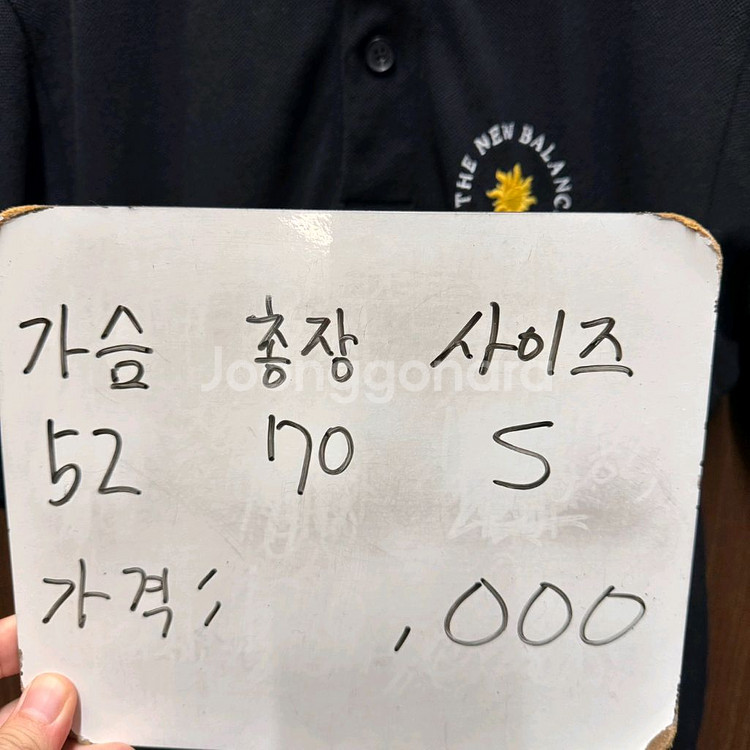 THE NEW BALANC
가슴 총장 사이즈
52 70 S
가격: ,000
Joonggonara